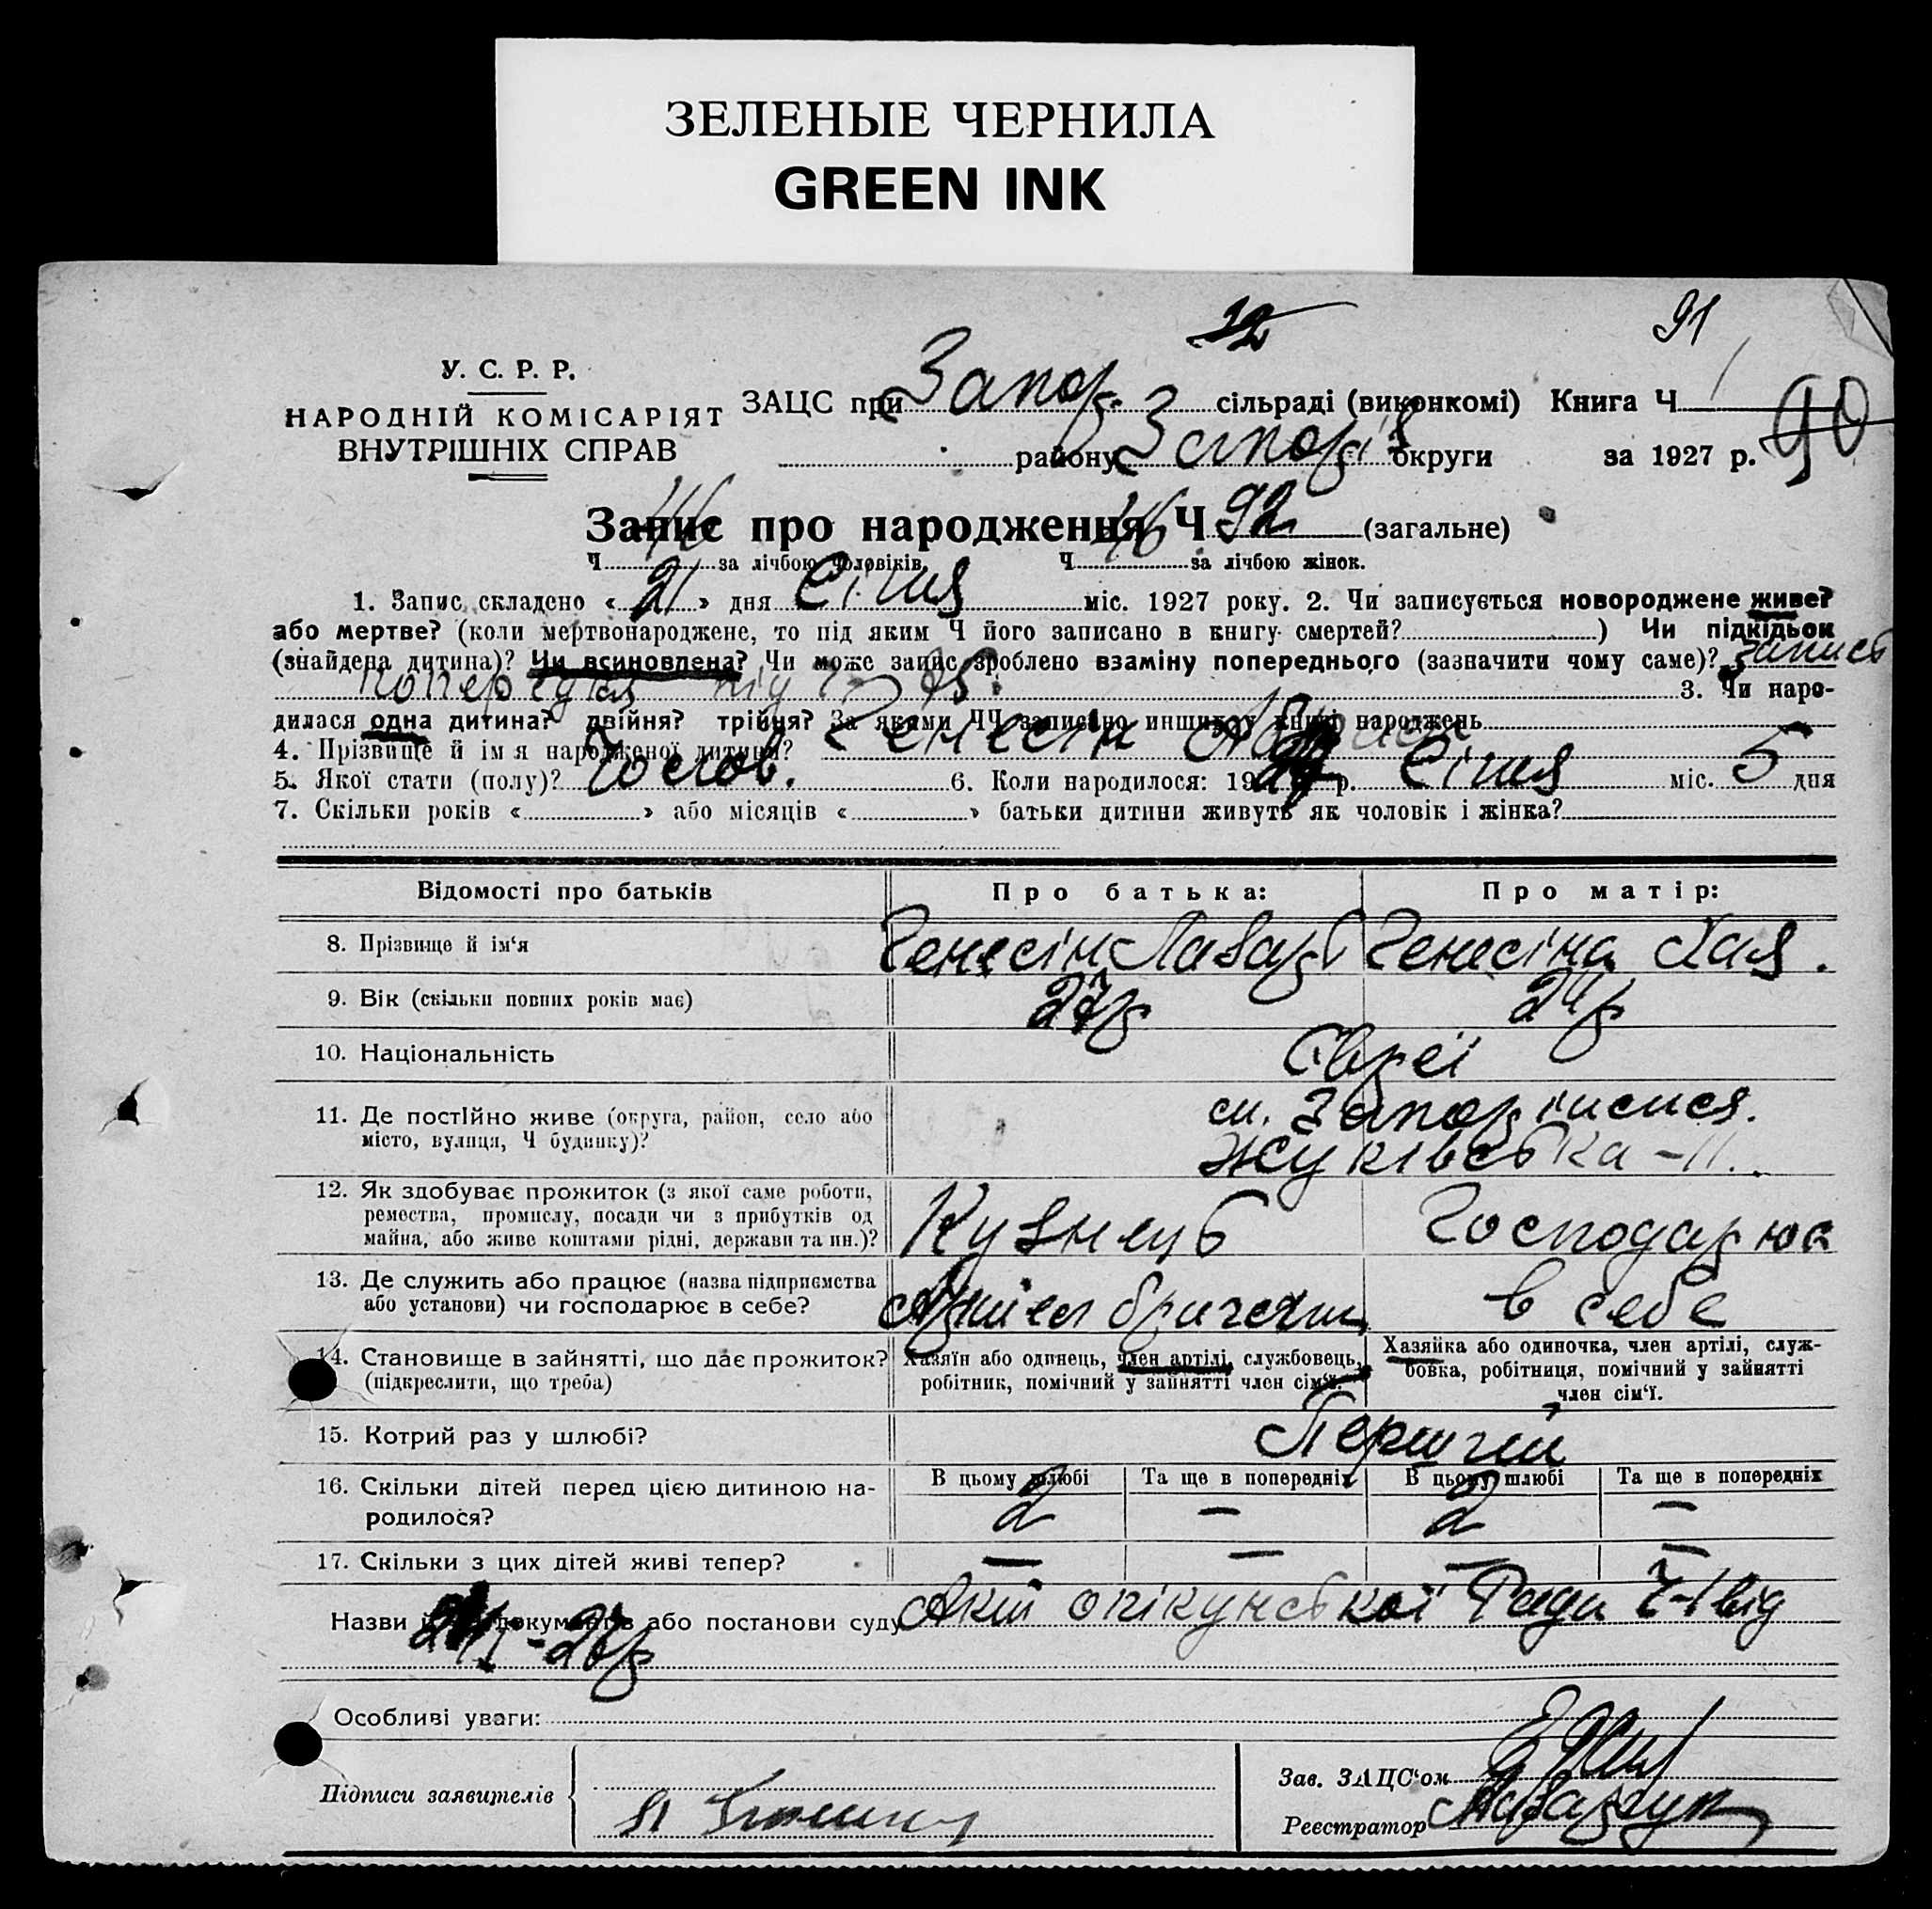 ЗЕЛЕНЫЕ ЧЕРНИЛА
GREEN INK
12
91
У. С. Р. Р.
НАРОДНІЙ КОМІСАРІЯТ
ВНУТРІШНІХ СПРАВ
ЗАЦС при Запор. сільраді (виконкомі) Книга Ч 1
90
району Запоріз округи за 1927 р.
Запис про народження Ч 92 (загальне)
Ч 46 за лічбою чоловіків Ч 46 за лічбою жінок.
1. Запис складено « 21 » дня Січня міс. 1927 року. 2. Чи записується новороджене живе?
або мертве? (коли мертвонароджене, то під яким Ч його записано в книгу смертей? ) Чи підкідьок
(знайдена дитина)? Чи всиновлена? Чи може запис зроблено взаміну попереднього (зазначити чому саме)? запись
попередня під 3. Чи наро-
дилася одна дитина? двійня? трійня? За якими ЧЧ записано инших у книзі народжень
4. Прізвище й ім я народженої дитини? Генесін
5. Якої стати (полу)? Чолов. 6. Коли народилося: 19 р. Січня міс. 5 дня
7. Скільки років « » або місяців « » батьки дитини живуть як чоловік і жінка?
Відомості про батьків Про батька: Про матір:
8. Прізвище й ім‘я Генесін Лазарь Генесіна Хая.
9. Вік (скільки повних років має) 27р 24р
10. Національність Євреї
11. Де постійно живе (округа, район, село або м. Запоріжжя.
місто, вулиця, Ч будинку)? Жуківська - 11.
12. Як здобуває прожиток (з якої саме роботи,
ремества, промислу, посади чи з прибутків од
майна, або живе коштами рідні, держави та ин.)? Кузнець Господарює
13. Де служить або працює (назва підприємства
або установи) чи господарює в себе? Артіел в себе
14. Становище в зайнятті, що дає прожиток? Хазяїн або одинець, член артілі, службовець, Хазяйка або одиночка, член артілі, служ-
(підкреслити, що треба) робітник, помічний у зайнятті член сім‘ї. бовка, робітниця, помічний у зайнятті
член сім‘ї.
15. Котрий раз у шлюбі? Перший
16. Скільки дітей перед цією дитиною на- В цьому шлюбі Та ще в попередніх В цьому шлюбі Та ще в попередніх
родилося? 2 — 2 —
17. Скільки з цих дітей живі тепер? — — — —
Назви й документів або постанови суду Акт опікунської Ради Ч-1 від
Особливі уваги:
Підписи заявителів
Зав. ЗАЦС‘ом
Реєстратор